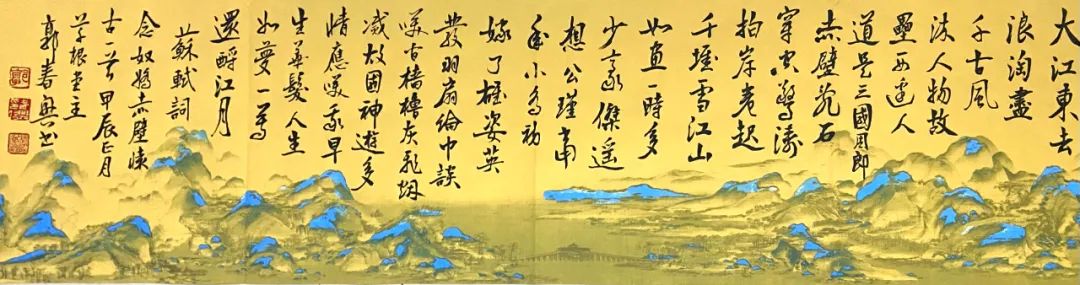 大江東去
浪淘盡
千古風
流人物故
壘西邊人
道是三國周郎
赤壁亂石
穿空驚濤
拍岸卷起
千堆雪江山
如畫一時多
少豪傑遙
想公瑾當
年小喬初
嫁了雄姿英
發羽扇綸巾談
笑間檣櫓灰飛烟
滅故國神遊多
情應笑我早
生華髮人生
如夢一尊
還酹江月
蘇軾詞
念奴嬌赤壁懷
古一首甲辰正月
草根堂主
郭春书